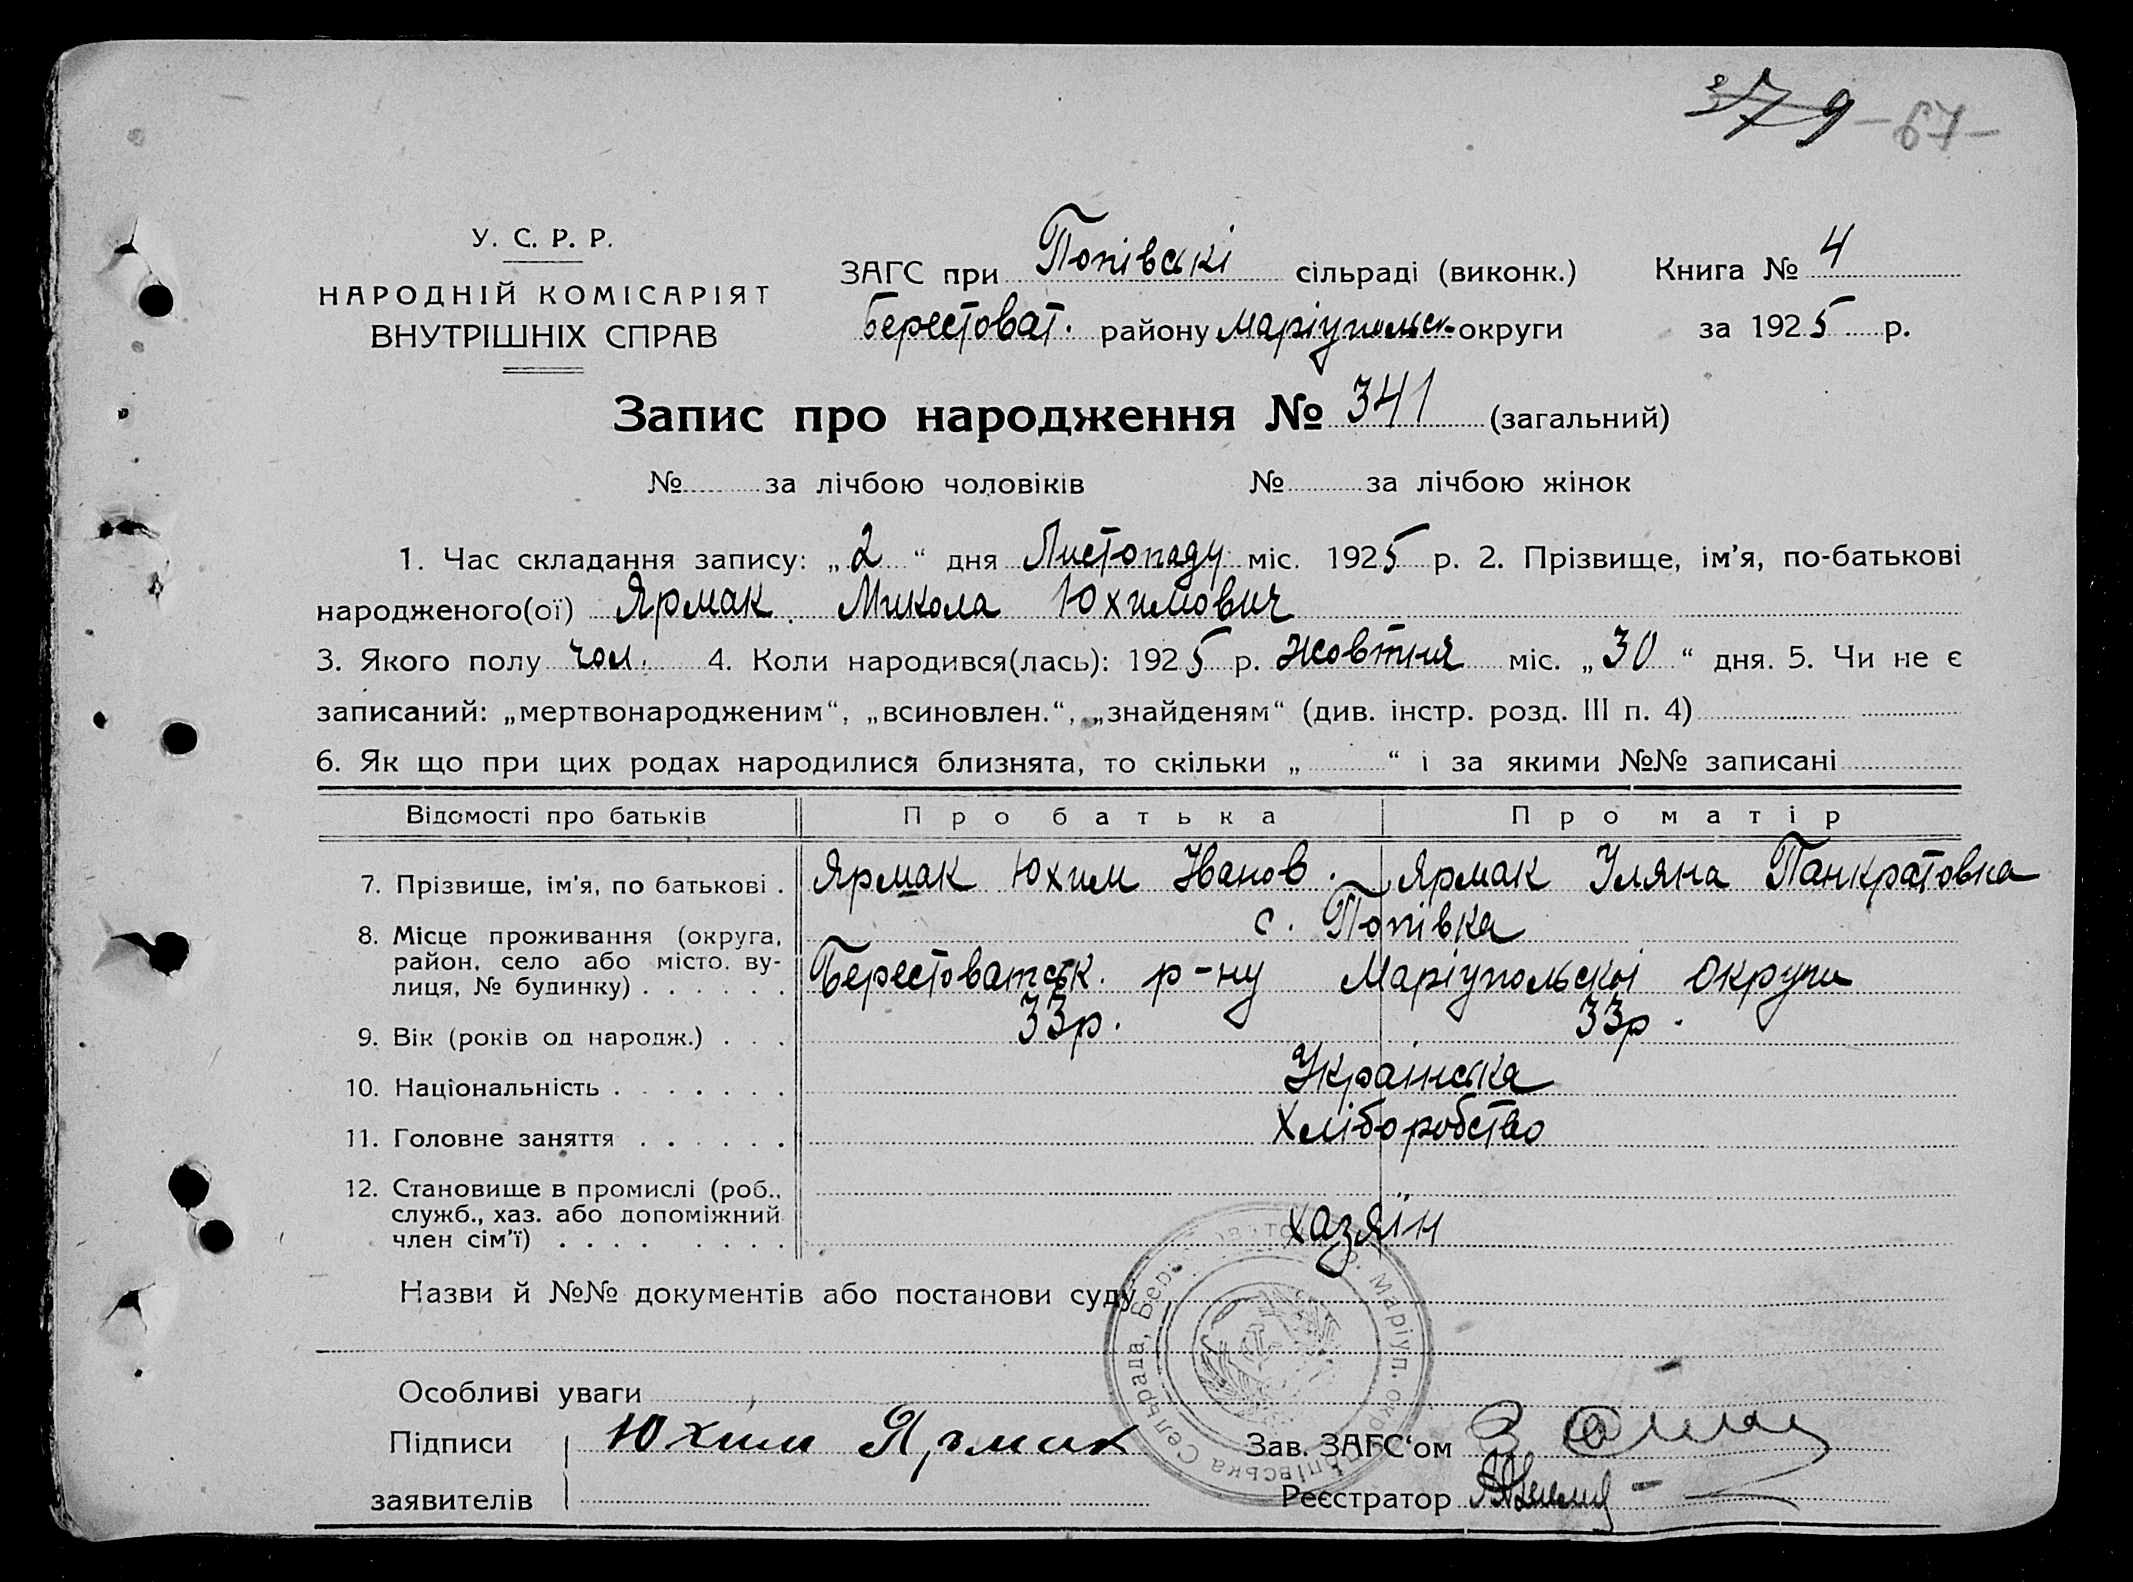 379 -67-
У. С. Р. Р.
НАРОДНІЙ КОМІСАРІЯТ
ВНУТРІШНІХ СПРАВ
ЗАГС при Попівські сільраді (виконк.)
Берестоват. району Маріупольск. округи
Книга № 4
за 1925 р.
Запис про народження № 341 (загальний)
№ за лічбою чоловіків № за лічбою жінок
1. Час складання запису: „2“ дня Листопаду міс. 1925 р. 2. Прізвище, ім’я, по-батькові
народженого(ої) Ярмак Микола Юхимович
3. Якого полу чол. 4. Коли народився(лась): 1925 р. Жовтня міс. „30“ дня. 5. Чи не є
записаний: „мертвонародженим“, „всиновлен.“, „знайденям“ (див. інстр. розд. III п. 4)
6. Як що при цих родах народилися близнята, то скільки „ “ і за якими №№ записані
Відомості про батьків Про батька Про матір
7. Прізвище, ім’я, по батькові . Ярмак Юхим Іванов. Ярмак Уляна Панкратовна
8. Місце проживання (округа, с. Попівка
район, село або місто, ву-
лиця, № будинку) . . . . . . Берестоватськ. р-ну Маріупольскої округи
9. Вік (років од народж.) . . . 33р. 33р.
10. Національність . . . . . . . Українська
11. Головне заняття . . . . . . Хліборобство
12. Становище в промислі (роб.,
служб., хаз. або допоміжний
член сім’ї) . . . . . . . . хазяїн
Назви й №№ документів або постанови суду
Особливі уваги
Підписи Юхим Ярмак Зав. ЗАГС‘ом
заявителів Реєстратор
Попівська Сельрада, Маріуп. окр.